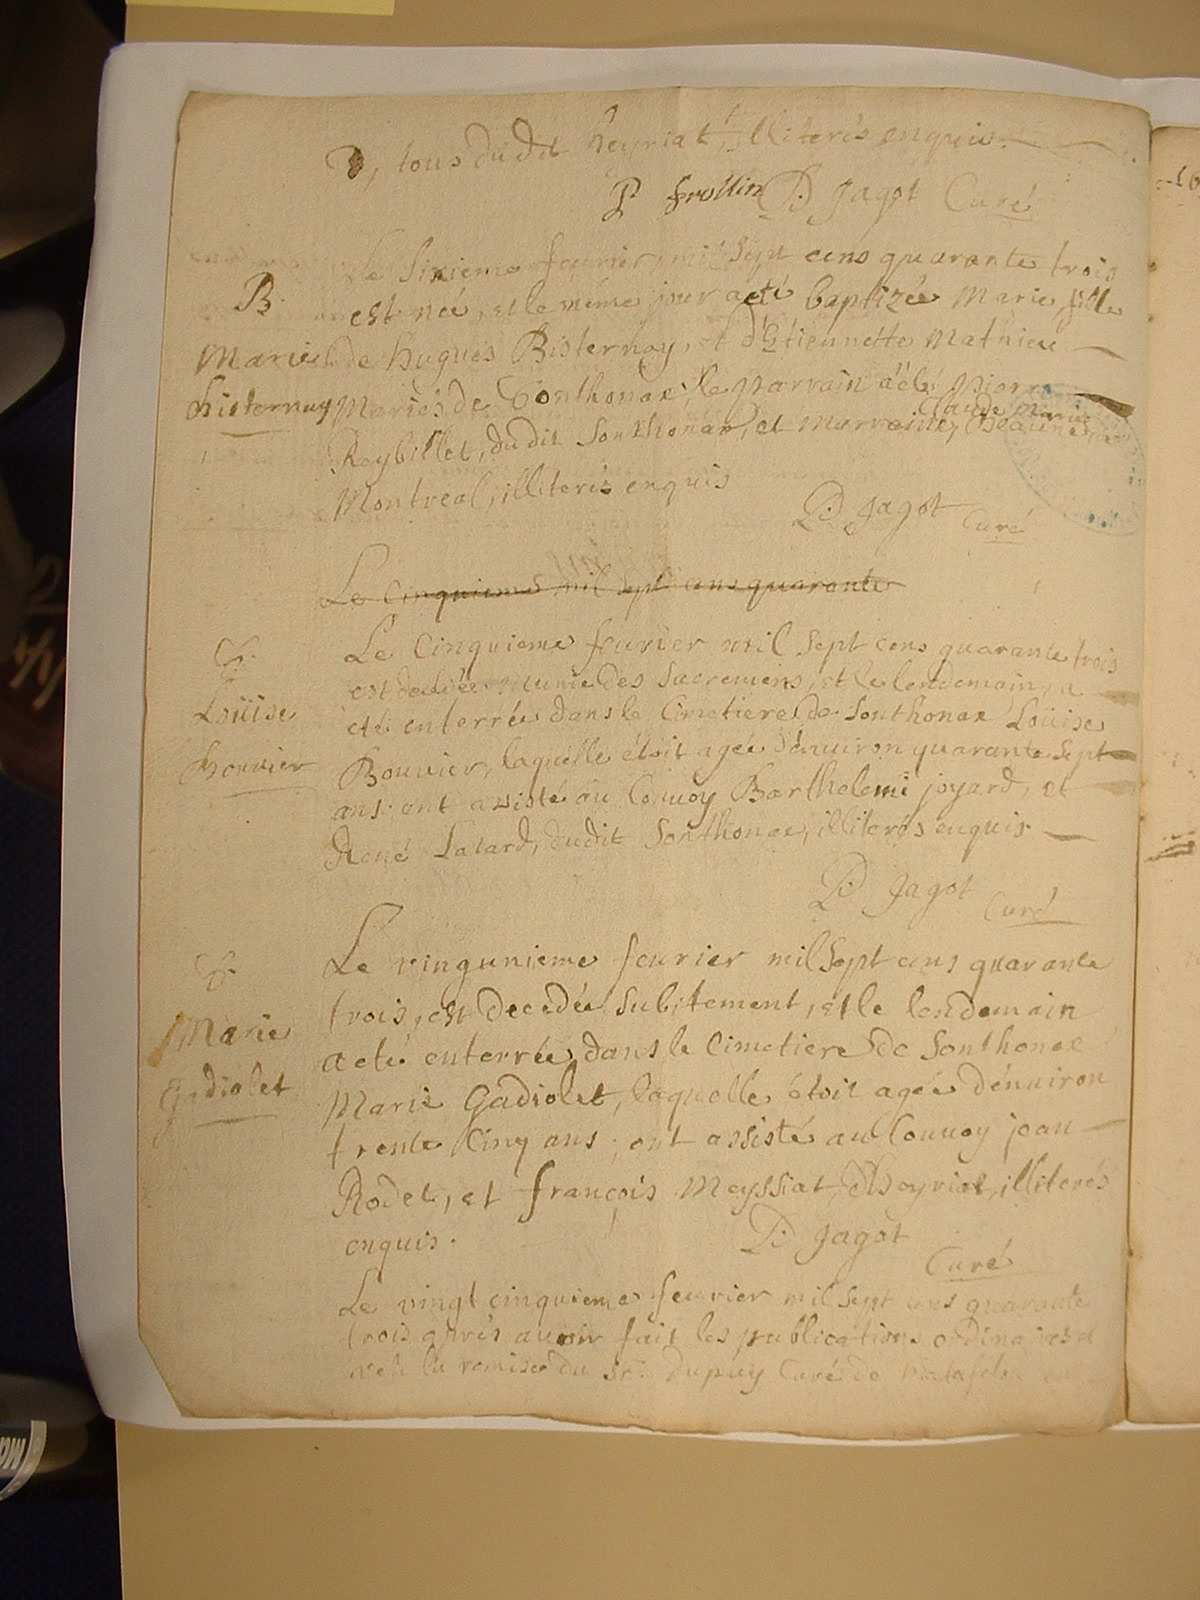 , tous dudit heyriat, illiterés enquis.
P frollin D. Jagot Curé
Le sixieme feurier, mil sept cens quarante trois
B.
est née, et le même jour a eté baptizée Marie, fille
Marie
de hugues Bisternay, et d'Etiennette Mathieu
bisternay
Mariés de Sonthonax, le parrain a eté pierre
Reybillet, du dit Sonthonax, et marraine, Claude Marie
Montreal, illiteris enquis
D. Jagot Curé
Le Cinquieme mil sept cens quarante
Le Cinquieme feurier mil sept cens quarante trois
S.
est decedée munie des sacremens, et le lendemain, a
Loüise
eté enterrée dans le Cimetiere de Sonthonax Loüise
bouvier
Bouvier, laquelle étoit agée dénuiron quarante sept
ans. ont assisté au Conuoy Barthelemi joyard, et
René Lalard, dudit Sonthonax, illiterés enquis.
D. Jagot
Curé
Le vingunieme feurier mil sept cens quarante
S.
trois, est decedée subitement, et le lendemain
Marie
a eté enterrée dans le Cimetiere de Sonthonax
Gadiolet
Marie Gadiolet, laquelle étoit agée dénuiron
trente Cinq ans, ont assisté au Conuoy jean
Rodet, et françois Meyssiat, d'heyriat, illiterés
enquis.
D. Jagot
Curé
Le vingt cinquieme feurier mil sept cens quarante
trois aprés auoir fait les publications ordinaires
veü la remise du Sr. Dupuy Curé de